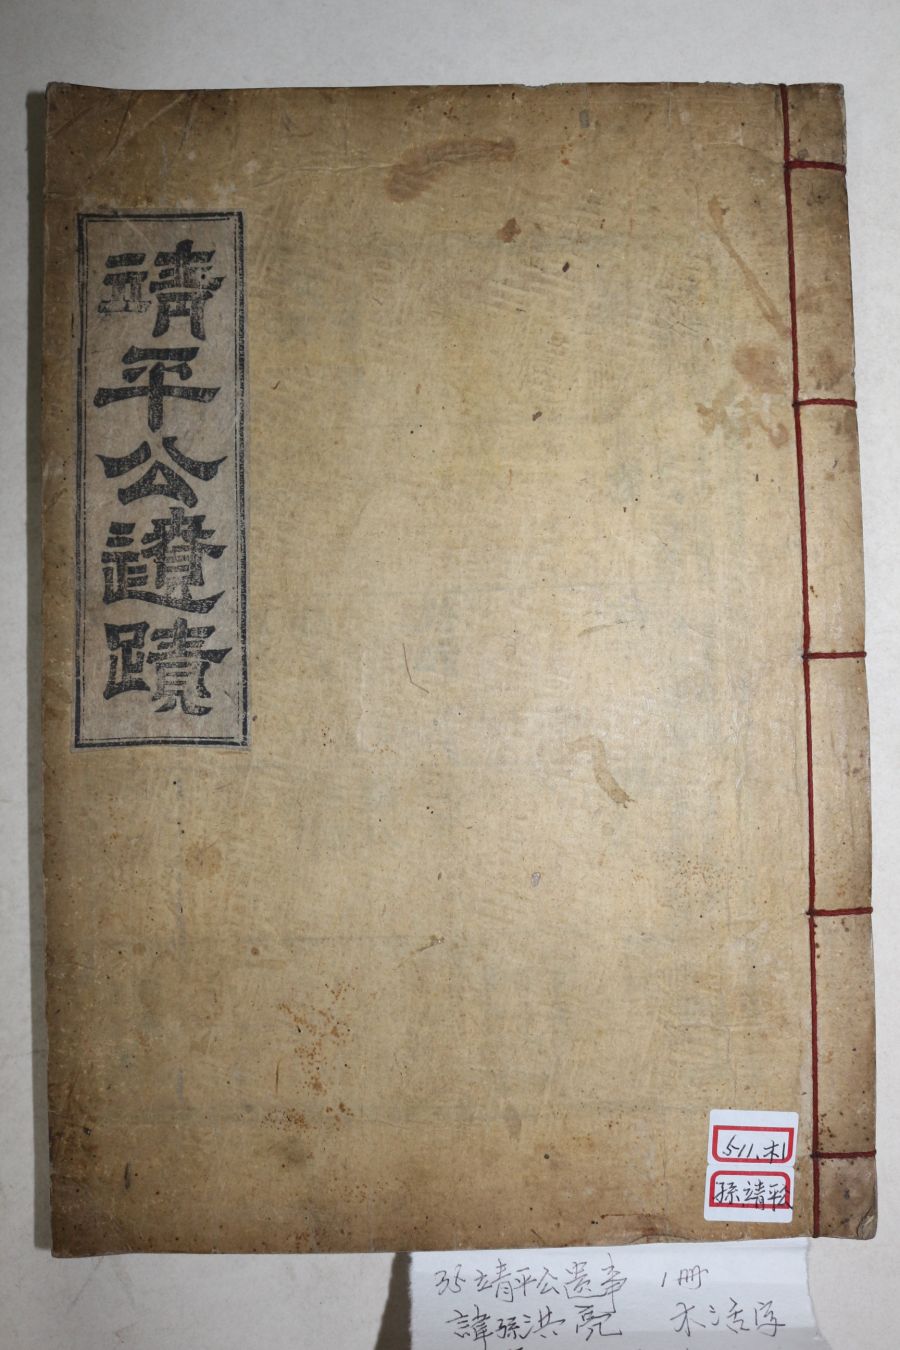 靖平公遺蹟
511.木1
孫靖平公
35 靖平公遗事 1冊
諱孫洪亮 木活字